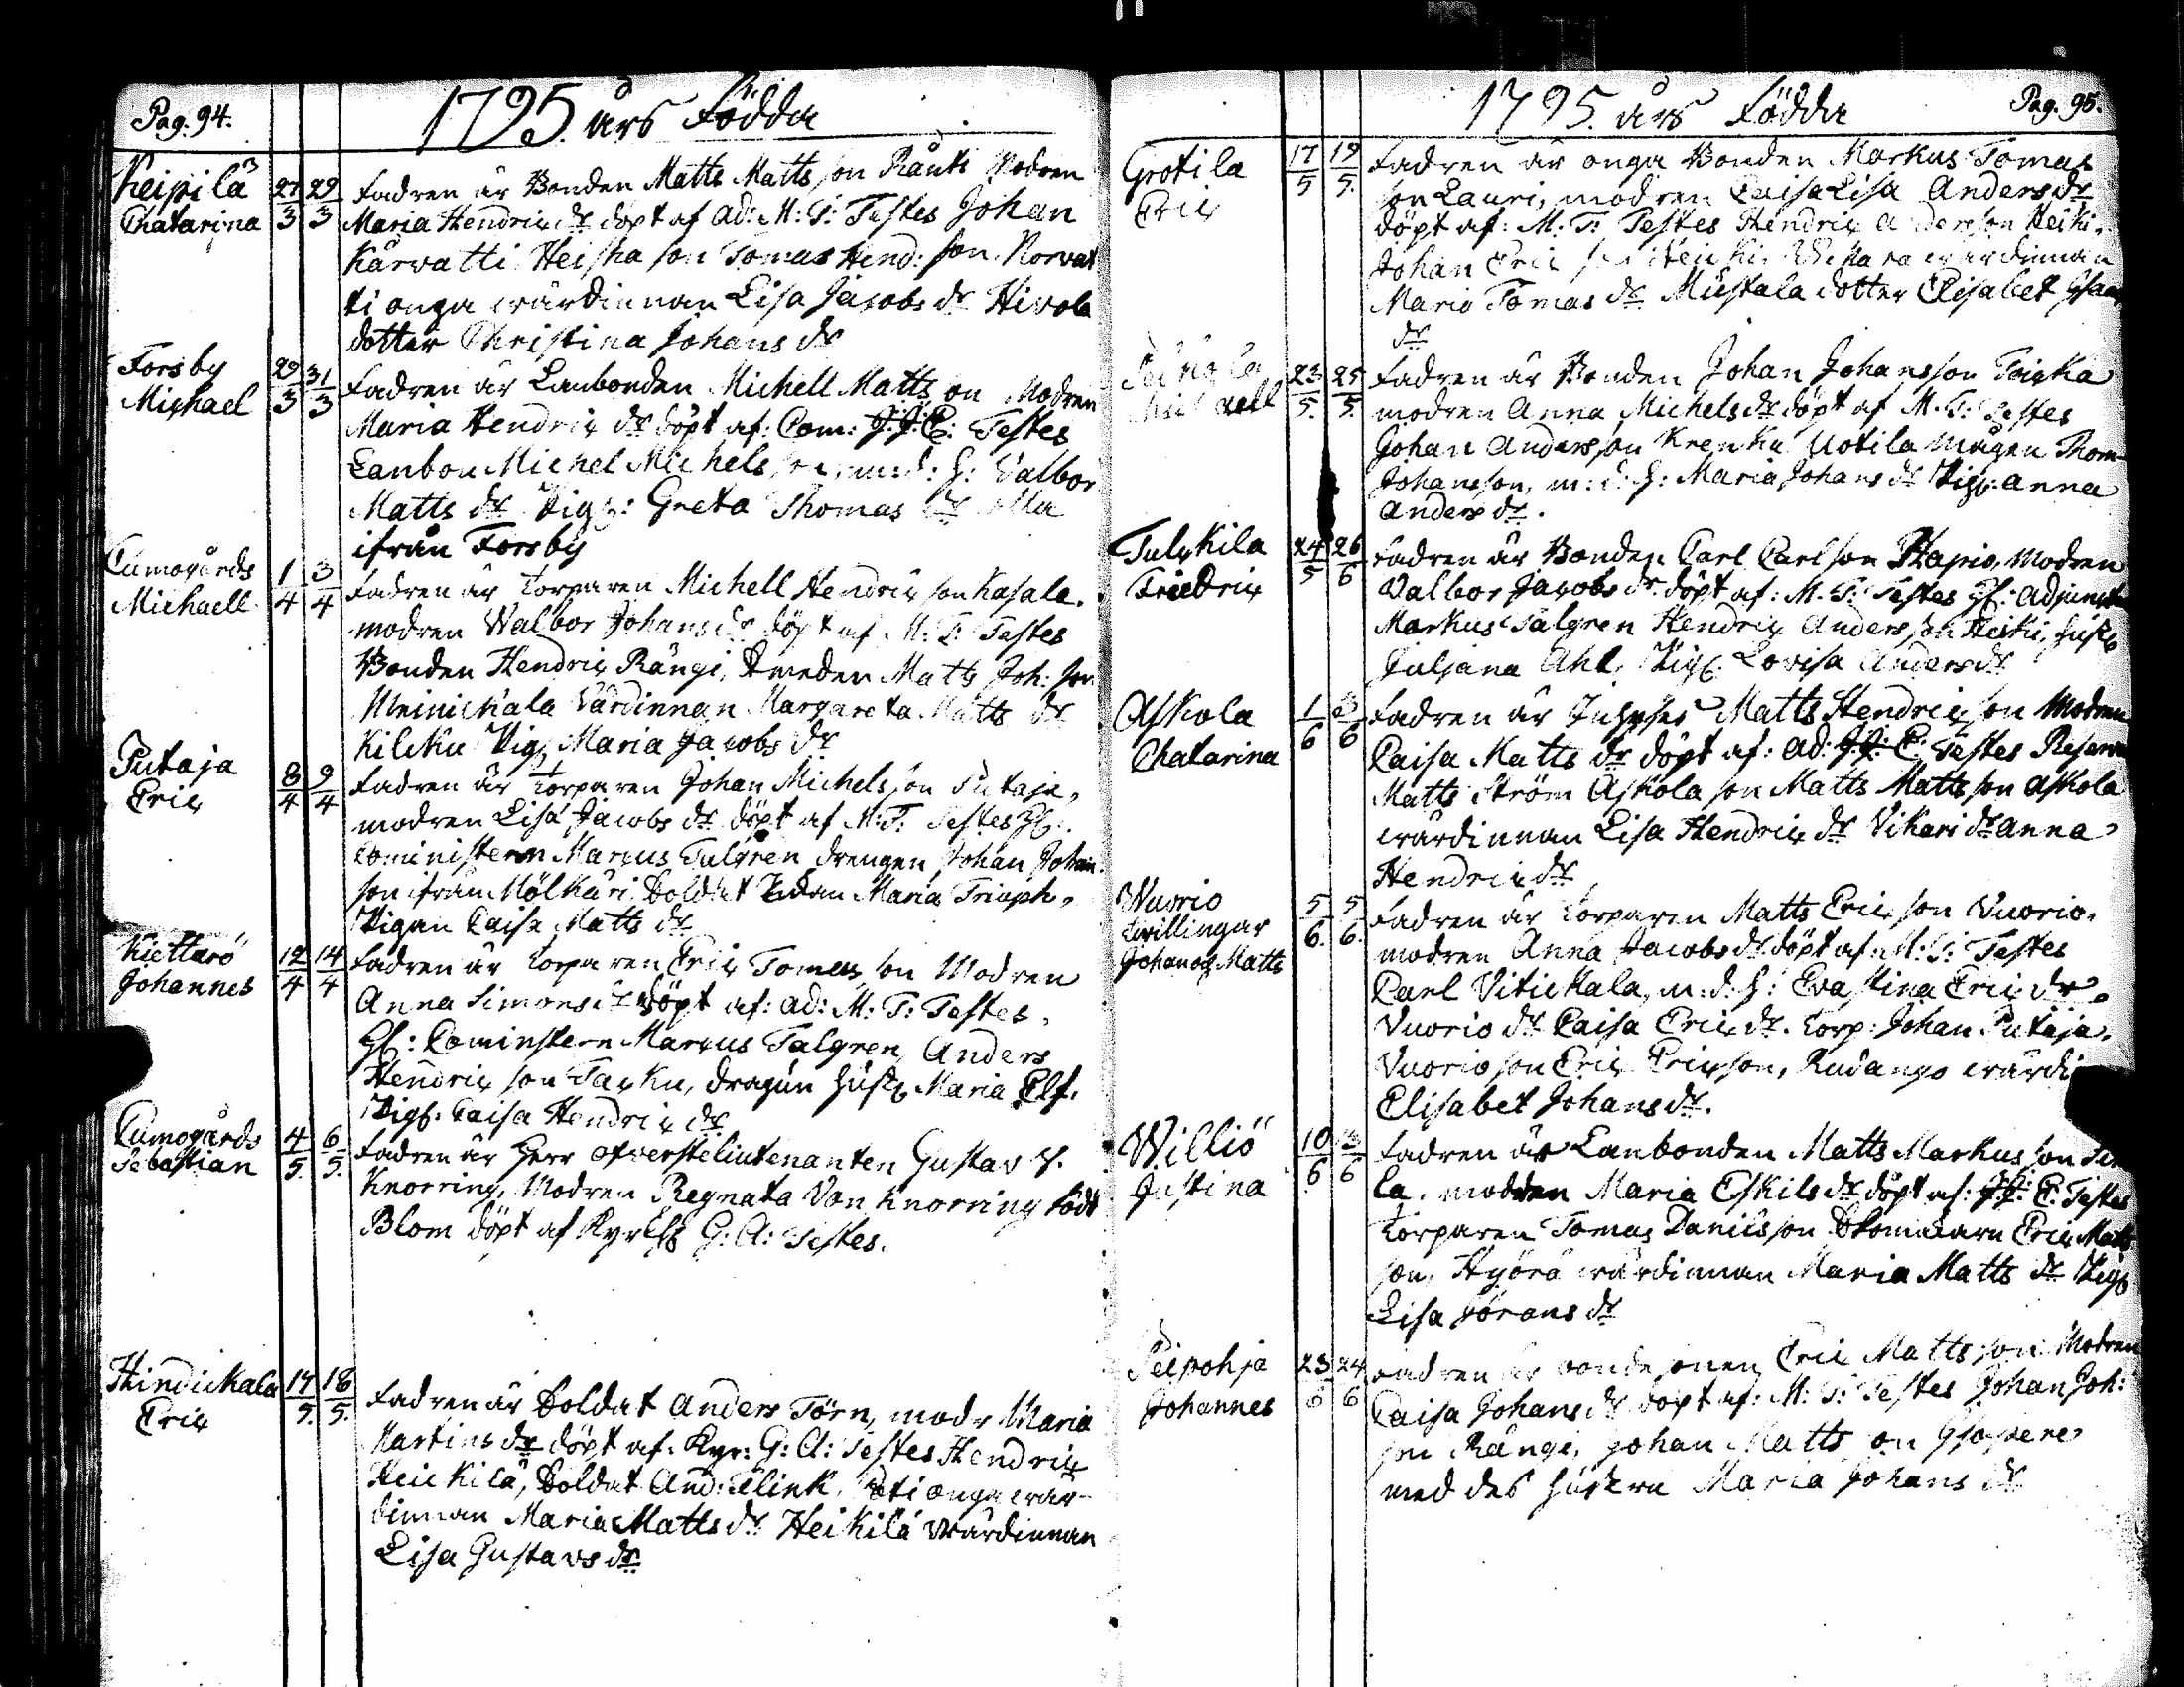 Pag. 94.
1795. års Födda
Keipilä 27/3 29/3 Fadren är Bonden Matts Matts son Rauti Modren
Chatarina Maria Hendrix dr döpt af Ad: M: T: Testes Johan
Karvatti Heisha son Tomas Hend: son Korvat
ti onga wärdinnan Lisa Jacobs dr Hirola
dotter Christina Johans dr
Forsby 29/3 31/3 Fadren är Lanbonden Michell Matts son Modren
Michael Maria Hendrix dr döpt af: Com: J: J: C: Testes
Lanbon Michel Michels son, m: d: H: Valbor
Matts dr Pig: Greta Thomas dr alla
ifrån Forsby
Cumogårds 1/4 3/4 Fadren är Torparen Michell Hendrix son Kasala.
Michaell modren Walbor Johans dr döpt af M: T: Testes
Bonden Hendrix Rängi, Smeden Matts Joh: son
Meinickala Värdinnan Margareta Matts dr
Kilcku Pig Maria Jacobs dr
Putaja 8/4 9/4 Fadren är Torparen Johan Michels son Putaja,
Eric modren Lisa Jacobs dr döpt af M: T: Testes H:
Cominstern Marcus Talgren drengen Johan Johan
son ifrån Mölkäri Soldat Enkan Maria Triuph,
Pigan Caisa Matts dr
Kiettarö 12/4 14/4 Fadren är Torparen Eric Tomas son Modren
Johannes Anna Simons dr döpt af: ad: M: T: Testes.
H: Cominstern Marcus Talgren, Anders
Hendrix son Tacku, dragun hust Maria Elf.
Pig: Caisa Hendrix dr
Cumogårds 4/5. 6/5. Fadren är Herr öfverstelieutenanten Gustav V.
Sebastian Knorring, Modren Regnata Von Knorring född
Blom döpt af Kyrkh G: A: Testes.
Hindickala 14/5. 18/5. Fadren är Soldat Anders Törn, modr Maria
Eric Martins dr döpt af: Kyr: G: A: Testes Hendrix
Heickilä, Soldat And: Flink, onga wär-
dinnan Maria Matts dr Heikilä wärdinnan
Lisa Gustavs dr
Pag. 95.
1795. års Födda
Grotila 17/5 19/5. Fadren är onga Bonden Markus Tomas
Eric son Lauri, modren Caisa Lisa Anders dr
döpt af: M: T: Testes Hendrix Andersson Heiki,
Johan Eric son wärdinnan
Maria Tomas dr Mustala dotter Elisabet Isaac
dr
23/5. 25/5. Fadren är Bonden Johan Johansson Toicka
modren Anna Michels dr döpt af M. T: Testes
Johan Andersson Krenku Uotila mågen Thom-
Johansson, m: d: H: Maria Johans dr Pig: Anna
Anders dr.
Tulckila 24/5 26/6 Fadren är Bonden Carl Carlson Stapio, Modren
Friedrix Valbor Jacobs dr döpt af: M. T: Testes H: Adjunct
Markus Talgren Hendrix Andersson Heiki, hust
Juliana Ahl, Pig Lovisa Anders dr
Askola 1/6 3/6 Fadren är Inhyses Matts Hendrix son Modren
Chatarina Caisa Matts dr döpt af: ad: J. J: C: Testes Reserv
Matts Ström Askola son Matts Matts son Askola
wärdinnan Lisa Hendrix dr Vikari dr Anna
Hendrix dr
Wuorio 5/6. 5/6. Fadren är Torparen Matts Eric son Vuorio.
Twillingar modren Anna Jacobs dr döpt af: M: T: Testes
Johan och Matts Carl Vitickala, m: d: H: Eva Stina Eric dr.
Vuorio dr Caisa Eric dr. Torp: Johan Putaja.
Vuorio son Eric Ericson, Rudango wärdi
Elisabet Johans dr.
Williö 10/6 13/6 Fadren är Lanbonden Matts Markus son
Justina la. modren Maria Eskils dr döpt af: J. J: C: Testes
Torparen Tomas Daniels son Skomakarn Eric Matts
son, Hyörä wärdinnan Maria Matts dr Pig
Lisa Jörans dr
Peipohja 23/6 24/6 Fadren är bondesonen Eric Matts son Modren
Johannes Caisa Johans dr döpt af: M. T: Testes Johan Joh:
son Rängi, Johan Matts son
med des hustru Maria Johans dr